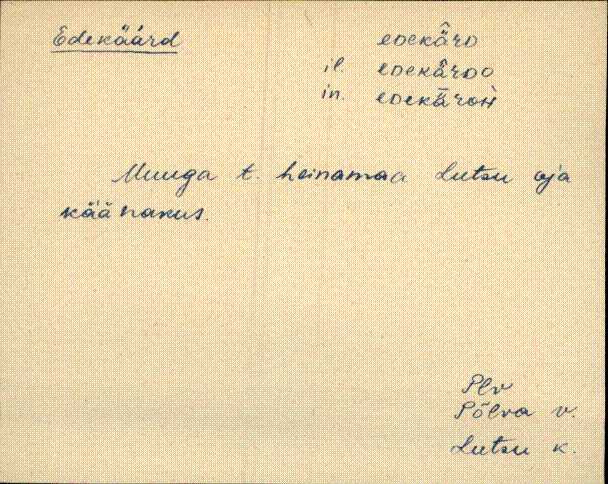 Edekäärd
eᴅᴇkä̂rᴅ
il. eᴅᴇkä̂rᴅᴅo
in. eᴅᴇkǟrᴅìì
Muuga t. heinamaa Lutsu oja
käänakus.
Plv
Põlva v.
Lutsu k.